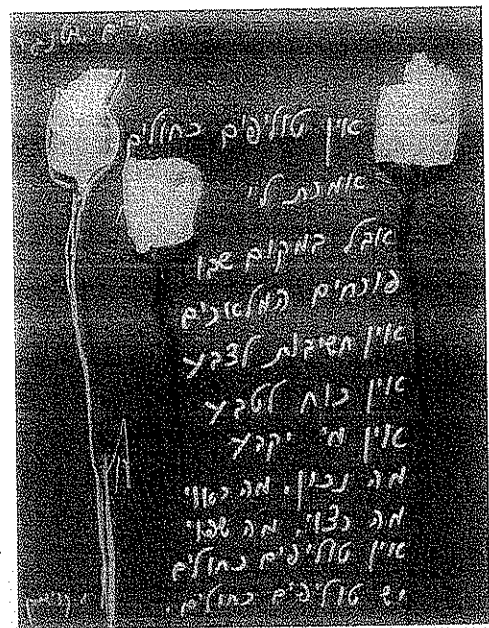 אין טוליפים כחולים
אומרת לי
אבל במקום שבו
פורחים המלאכים
אין חשיבות לצבע
אין כוח לטבע
אין מי יקבע
מה נכון, מה רצוי
מה שפוי
אין טוליפים כחולים
יש טוליפים כחולים.